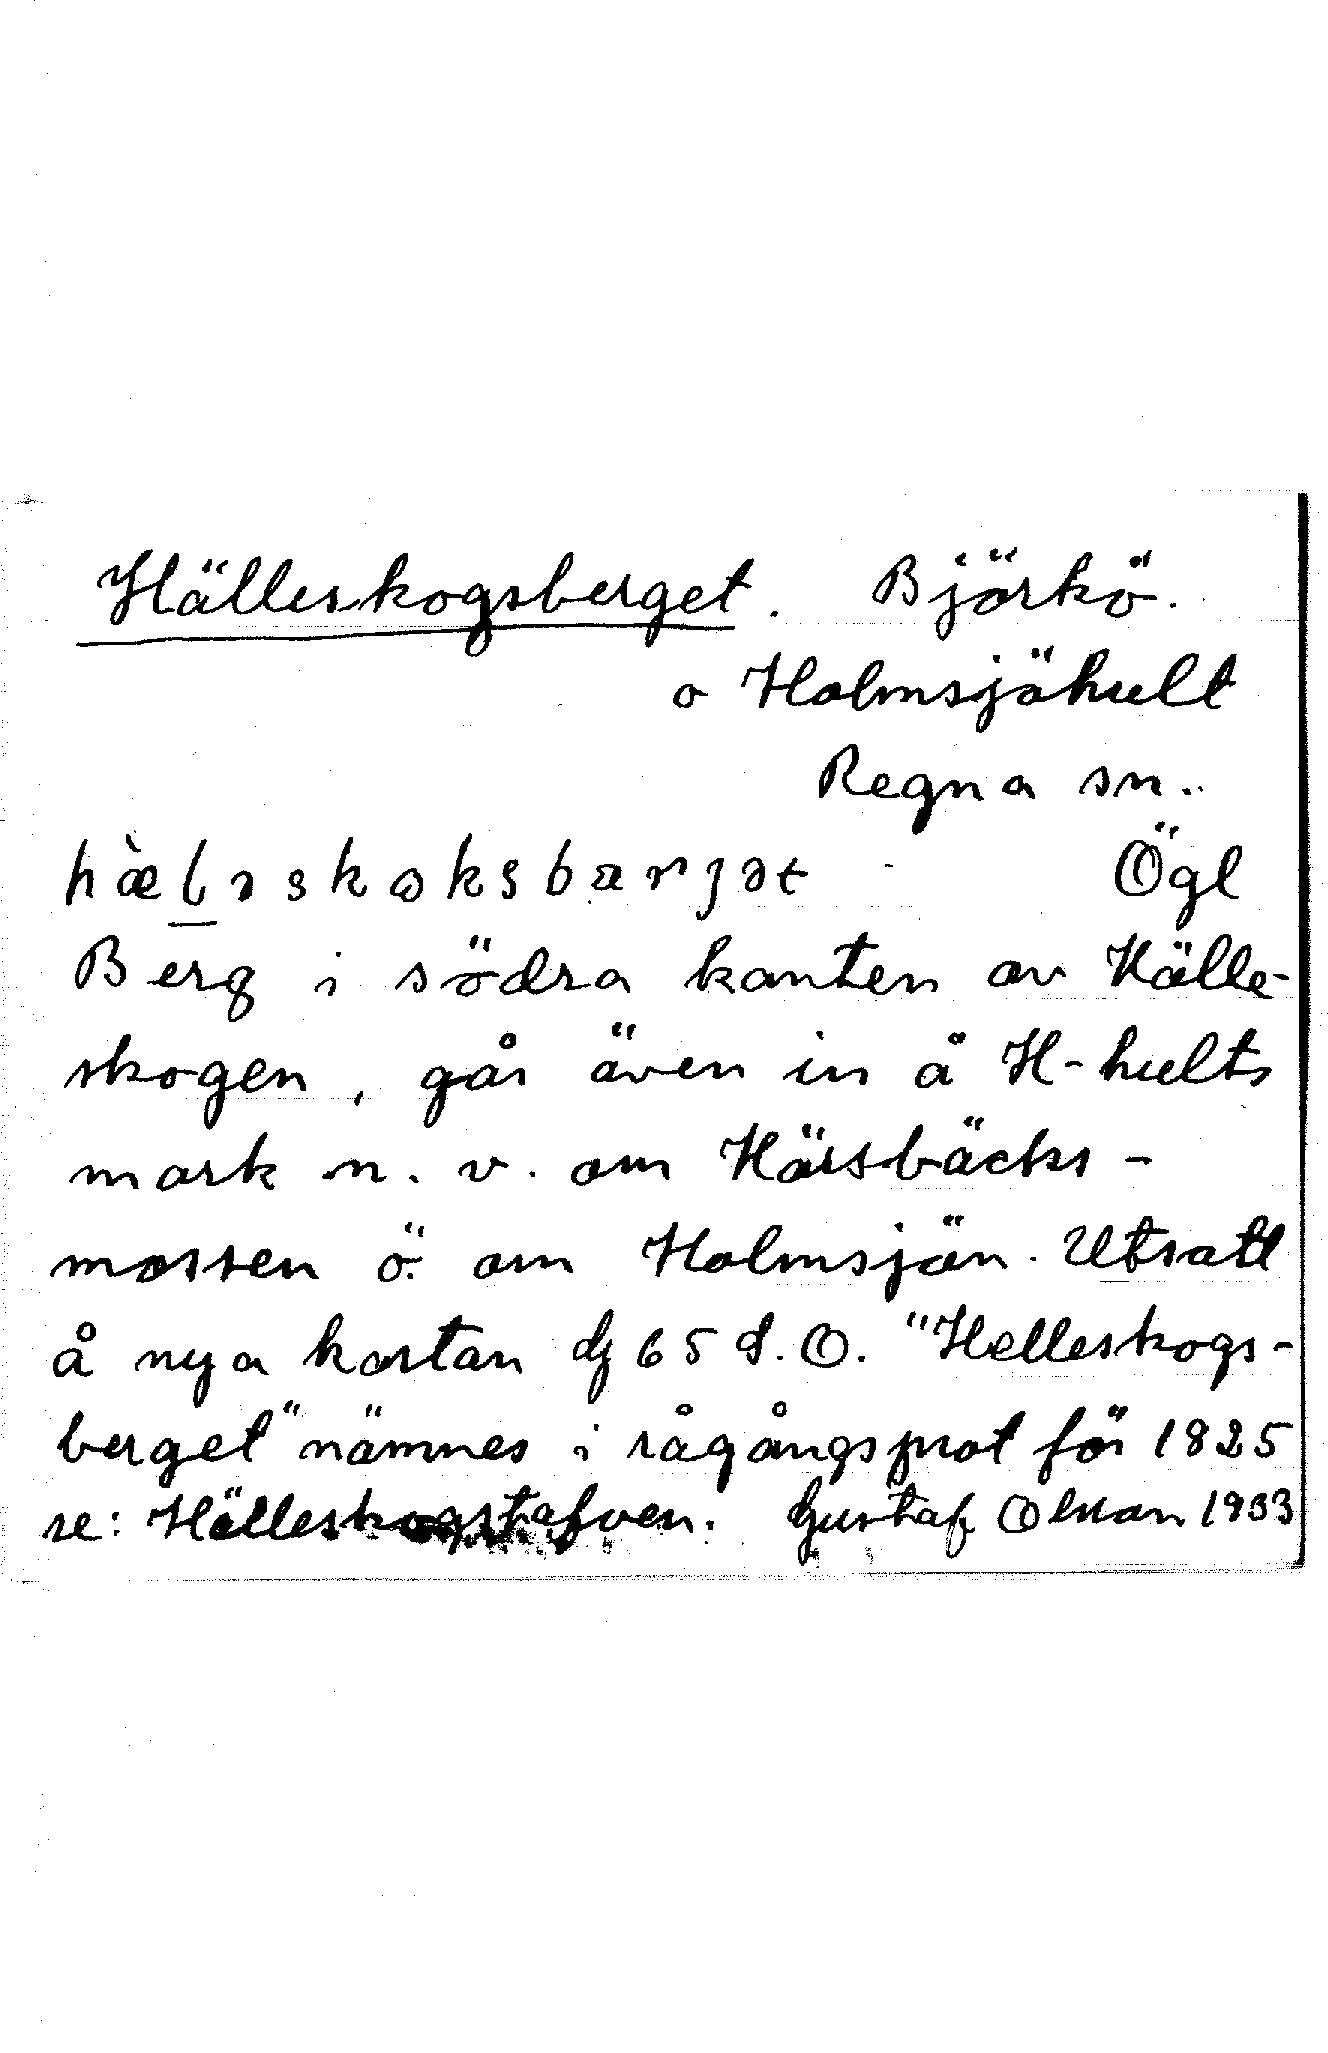 Hälleskogsberget. Björkö.
o Holmsjöhult
Regna sn.
hæ̀ləskoksbærjət Ögl
Berg i södra kanten av Hälle-
skogen, går även in å H-hults
mark n. v. om Kärsbäcks-
mossen ö. om Holmsjön. Utsatt
å nya kartan dj 65 S.O. "Helleskogs-
berget" nämnes i rågångsprot för 1825
se: Hälleskogstafven. Gustaf Olsson 1933